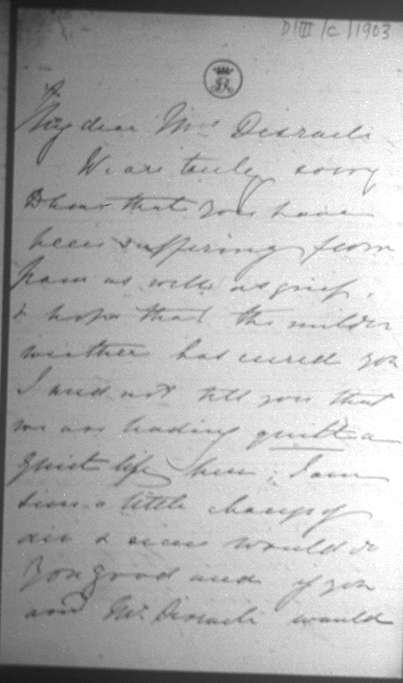 D/III/C/1903
My dear Mrs Disraeli
We are truly sorry
to hear that you have
been suffering from
pain as well as grief,
& hope that the milder
weather has cured you
I need not tell you that
we are leading quite a
quiet life here; I am
sure a little change of
air & scene would do
you good and if you
and Mr Disraeli would